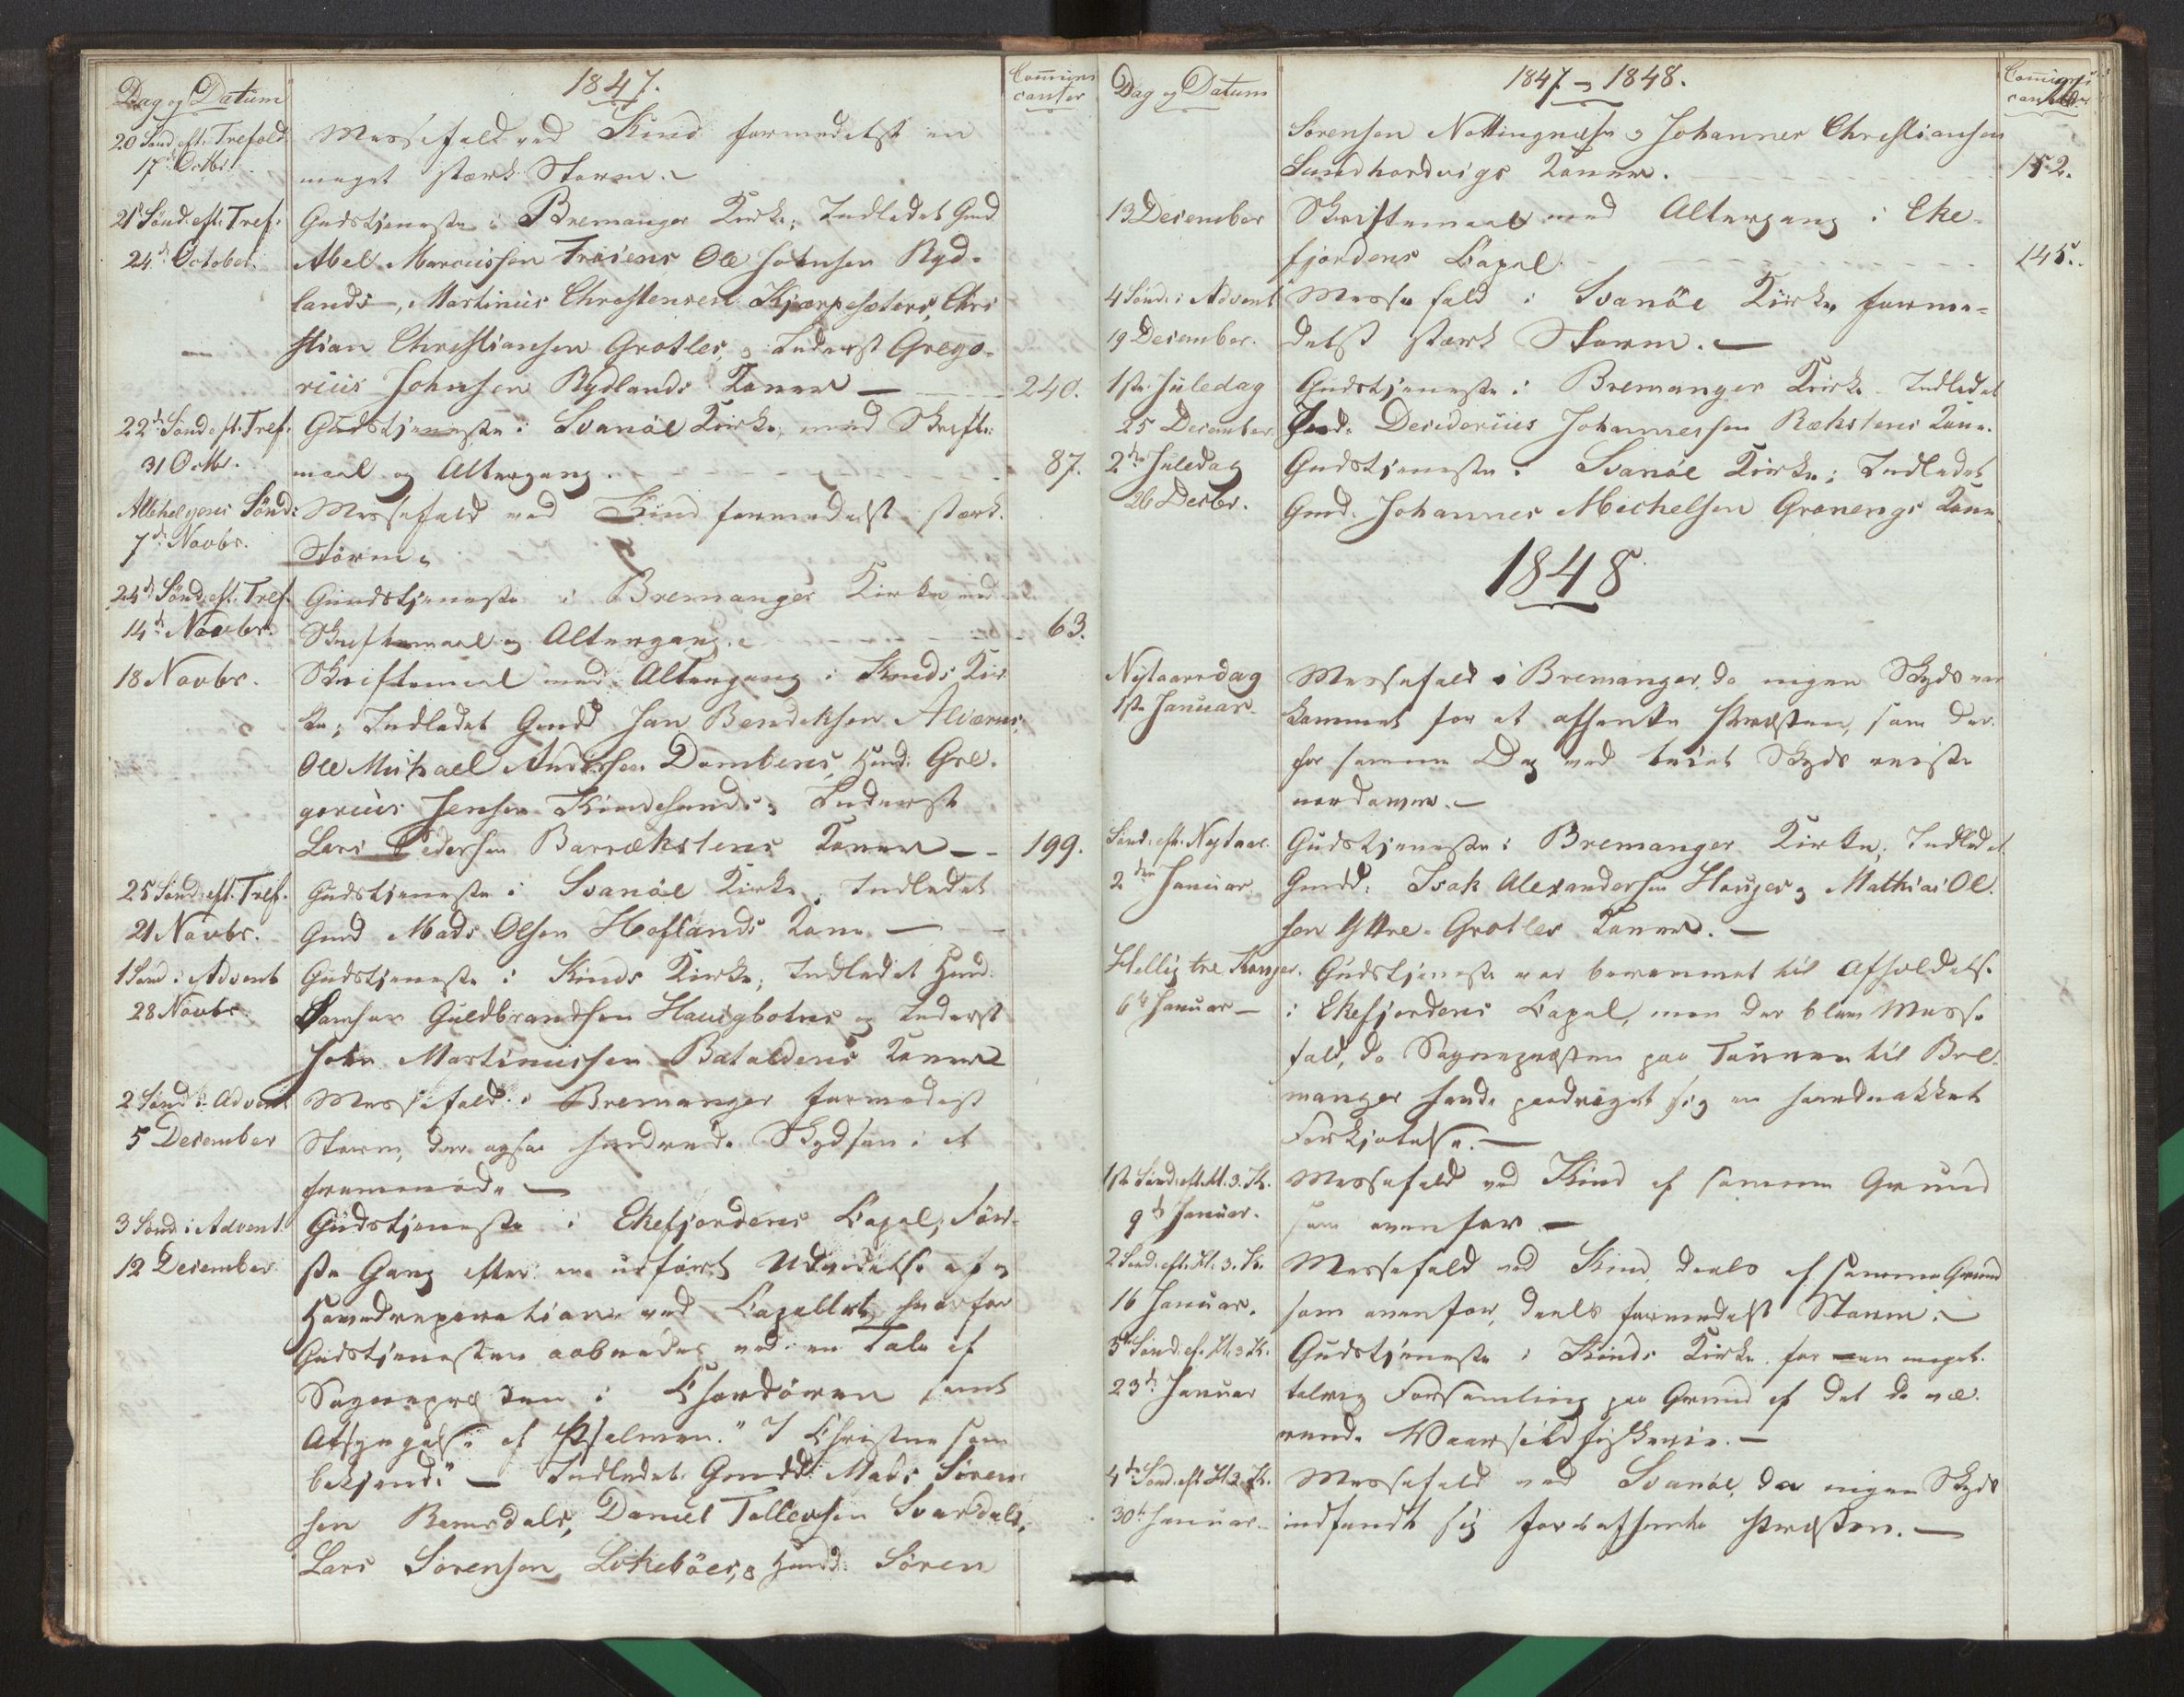 Dag og Datum
1847.
Communicanter
20 Sønd. eft. Trefold.
17de Octbr.
Messefald ved Kind formedelst en
meget stærk Storm. –
21de Sønd. eft. Tref.
24de October.
Gudstjeneste i Bremanger Kirke; Indledet Gmd
Abel Marcussen Frøiens, Ole Johnsen Ryd-
lands, Martinus Christensen Kjærpesæters, Chri
stian Christiansen Grotles, og Inderst Grego-
rius Johnsen Rydlands Koner – 240.
22de Sønd. eft. Tref.
31 Octbr.
Gudstjeneste i Svanöe Kirke, med Skrifte-
maal og Altergang. 87.
Allehelgens Sønd.
7de Novbr.
Messefald ved Kind formedelst stærk
Storm.
24de Sønd. eft. Tref.
14de Novbr.
Gudstjeneste i Bremanger Kirke med
Skriftemaal og Altergang. 63.
18 Novbr.
Skriftemaal med Altergang i Kinds Kir
ke; Indledet Gmdd Jan Bendiksen Alværns,
Ole Michael Andersen Dombens, Hmd. Gre-
gorius Jensen Kindesunds, Inderst
Lars Pedersen Barrækstens Koner – 199.
25 Sønd. eft. Tref.
21 Novbr.
Gudstjeneste i Svanöe Kirke; Indledet
Gmd Mads Olsen Hoflands Kone –
1 Sønd. i Advent
28 Novbr.
Gudstjeneste i Kinds Kirke; Indledet Hmd.
Guldbrandsen Haugbotns og Inderst
John Martinussen Bataldens Koner
2 Sønd. i Advent
5 December
Messefald i Bremanger formedelst
Storm, der ogsaa hindrede Skydsen i at
fremmøde –
3 Sønd. i Advent.
12 December
Gudstjeneste i Ekefjordens Capel, før-
ste Gang efter en udført Udvidelse af og
Hovedreparation ved Capellet, hvorfor
Gudstjenesten aabnedes ved en Tale af
Sognepræsten i Chordören samt
Afsyngelse af Psalmen: "I Christne som
bekjende" – Indledet Gmdd. Mads Sören
sen Ramsdals, Daniel Tollevsen Svardals,
Lars Sörensen Lökeböes, og Hmdd. Sören
Dag og Datum
1847 – 1848.
Communicanter
Sörensen Nottingnæs og Johannes Christiansen
Sandhordvigs Koner. 152.
13 December
Skriftemaal med Altergang i Eke-
fjordens Capel. 145.
4 Sønd. i Advent
19 December.
Messefald i Svanöe Kirke forme-
delst stærk Storm. –
1ste Juledag
25 December
Gudstjeneste i Bremanger Kirke. Indledet
Desiderius Johannessen Rækstens Kone.
2den Juledag
26 Decbr.
Gudstjeneste i Svanöe Kirke; Indledet
Gmd. Johannes Michelsen Grønengs Kone
1848
Nytaarsdag
1ste Januar.
Messefald i Bremanger, da ingen Skyds var
kommet for at afhente Præsten, som der-
for samme Dag med leiet Skyds reiste
nordover. –
Sønd. eft. Nytaar.
2den Januar.
Gudstjeneste i Bremanger Kirke; Indledet
Gmdd. Isak Alexandersen Hauges og Mathias Ol-
sen Yttre-Grotles Koner. –
Hellig tre Konger.
6te Januar –
Gudstjeneste var berammet til Afholdelse
i Ekefjordens Capel, men der blev Messe
fald, da Sognepræsten paa Touren til Bre-
manger havde paadraget sig en haardnakket
Forkjølelse. –
1ste Sønd. eft. H. 3. K.
9de Januar.
Messefald ved Kind af samme Grund
som ovenfor –
2 Sønd. eft. H. 3. K.
16 Januar.
Messefald ved Kind, deels af samme Grund
som ovenfor, deels formedelst Storm. –
Sønd. ef. H. 3 K.
23de Januar
Gudstjeneste i Kinds Kirke for en meget
talrig Forsamling paa Grund af det da væ-
rende Vaarsildfiskerie. –
4de Sønd. eft. H. 3. K.
30te Januar –
Messefald ved Svanöe, da ingen Skyds
indfandt sig for at afhente Præsten. –